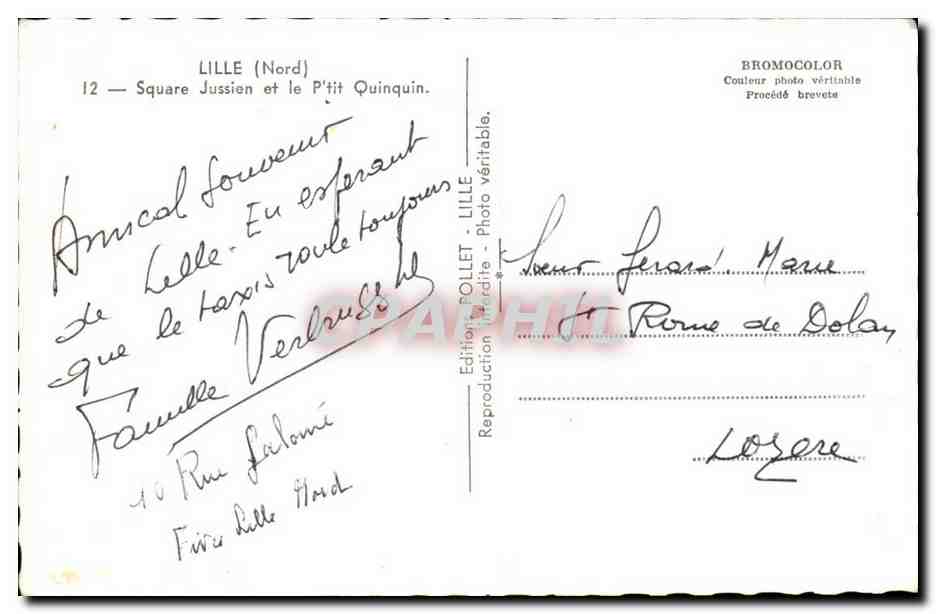 LILLE (Nord)
12 — Square Jussien et le P'tit Quinquin.
Amical souvenir
de Lille. En espérant
que le taxis roule toujours
Famille
10 Rue Salomé
Fives Lille Nord
Editions POLLET - LILLE
Reproduction interdite - Photo véritable.
CPAPHIL
BROMOCOLOR
Couleur photo véritable
Procédé brevete
Sœur Gerard. Marie
St Rome de Dolan
Lozere